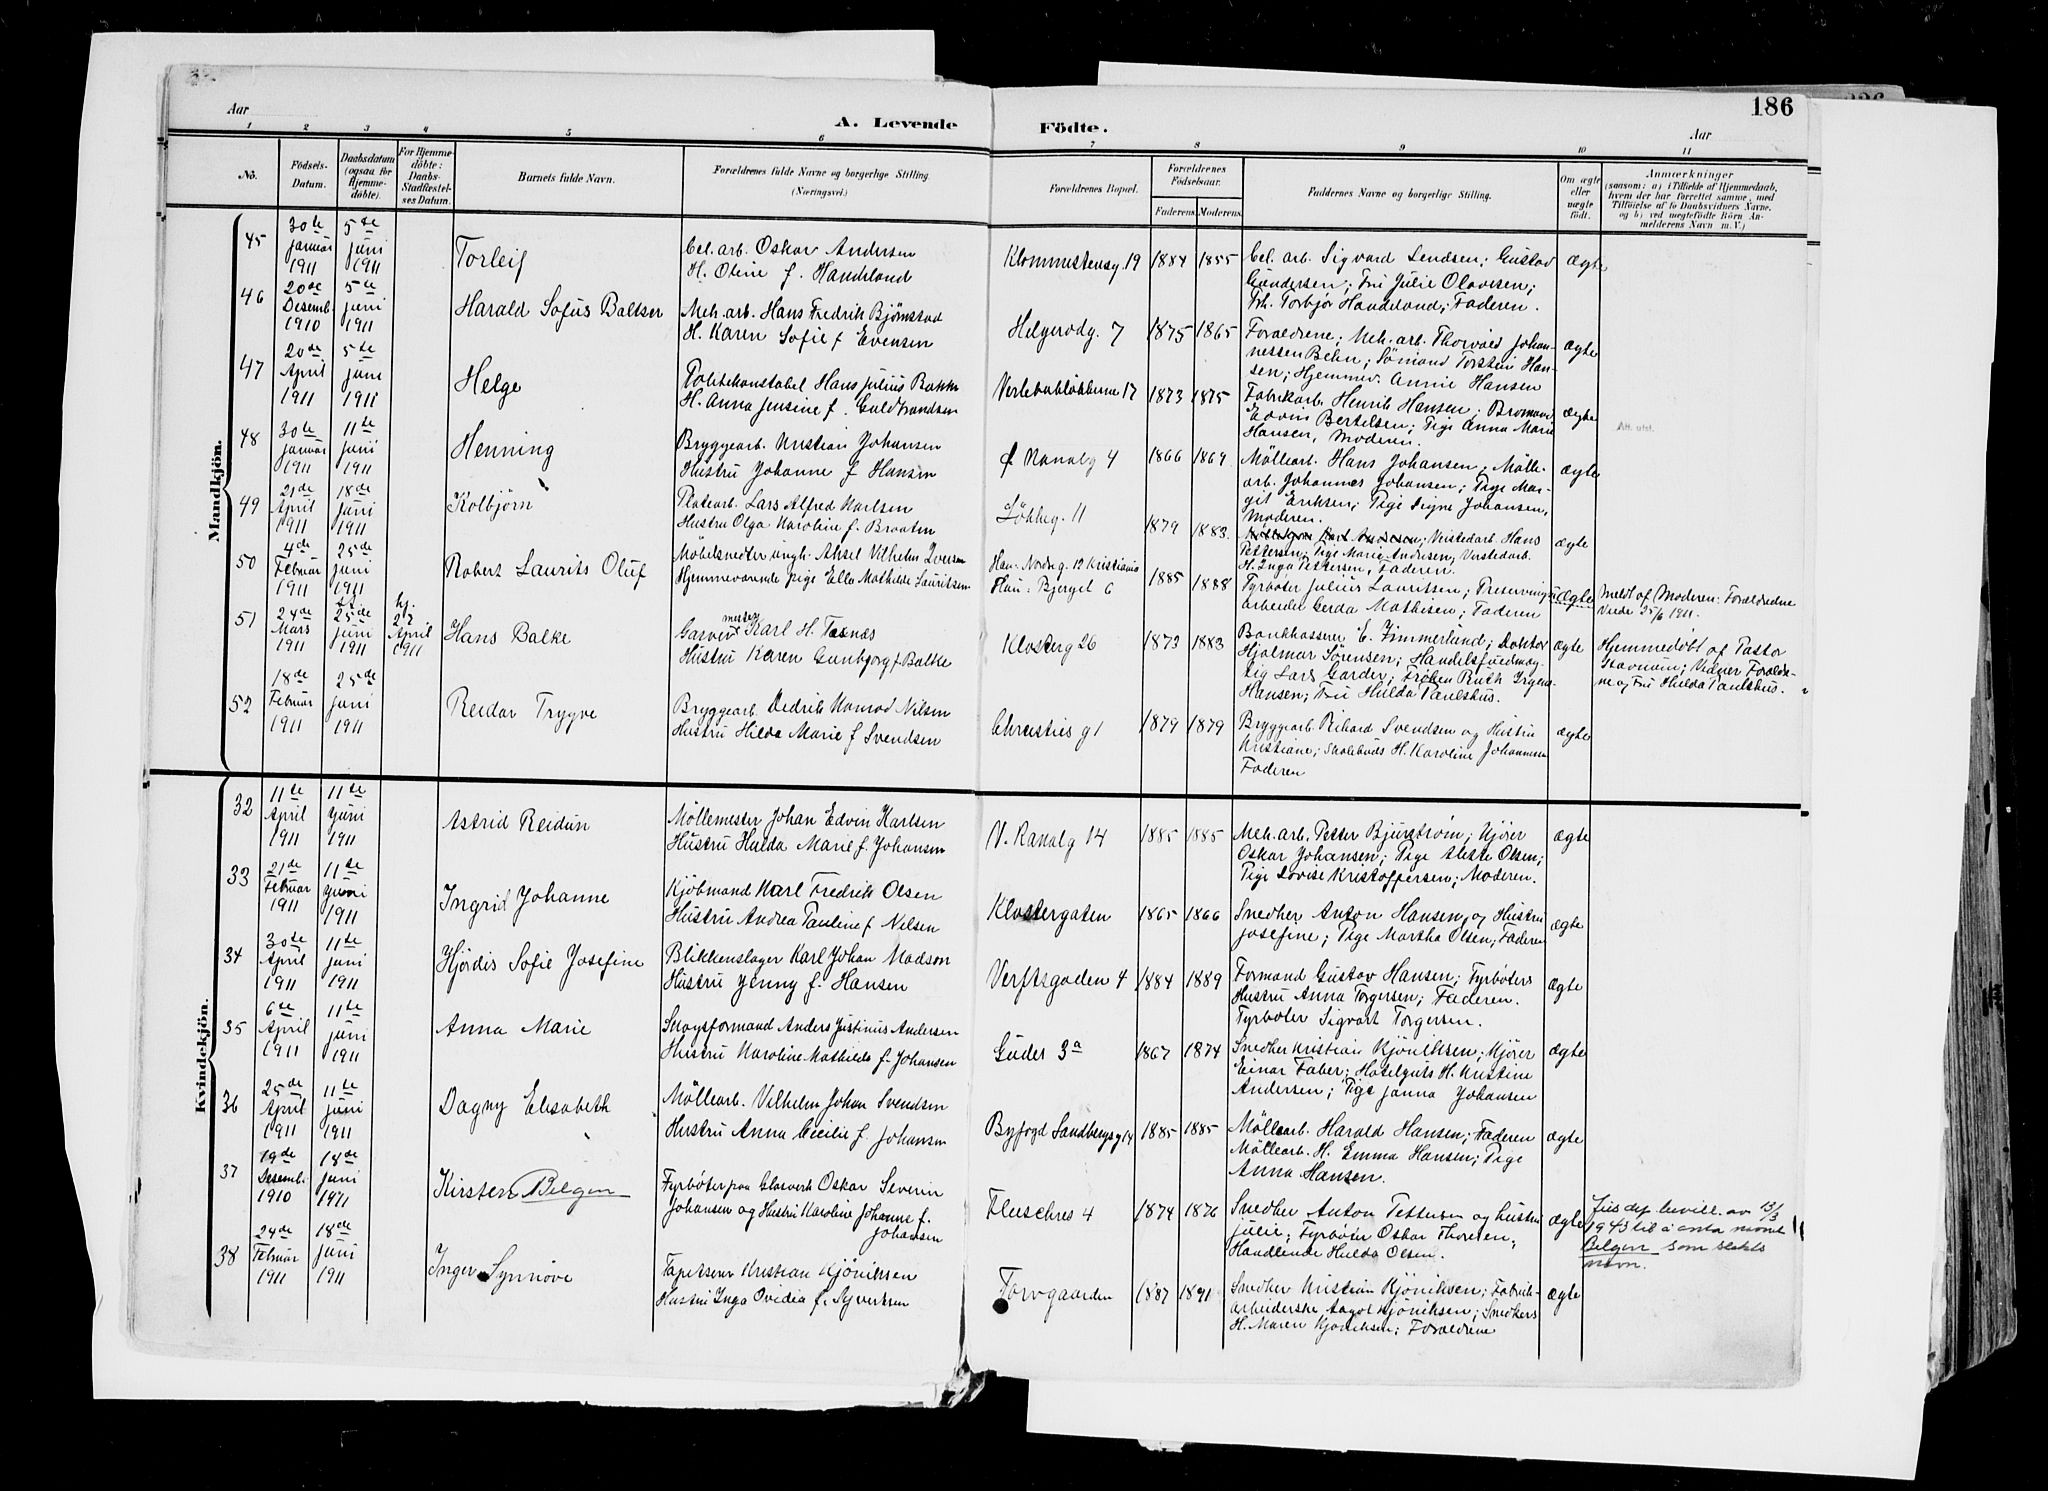 186
Aar
A. Levende Födte.
Aar
1 2 3 4 5 6 7 8 9 10 11
No.
Fødsels-Datum.
Daabsdatum (ogsaa for Hjemmedöbte).
For Hjemmedöbte: Daabs-Stadfæstelses Datum.
Barnets fulde Navn.
Forældrenes fulde Navne og borgerlige Stilling. (Næringsvei.)
Forældrenes Bopæl.
Forældrenes Födselsaar.
Faderens. Moderens.
Faddernes Navne og borgerlige Stilling.
Om ægte eller uægte født.
Anmærkninger
(saasom: a) i Tilfælde af Hjemmedaab, hvem der har forrettet samme, med Tilföielse af to Daabsvidners Navne, og b) ved uægtefödte Börn Anmelderens Navn m. V.)
Mandkjön.
45 30te Januar 1911 5te Juni 1911 Torleif
Cel. arb. Oskar Andersen
H. Otine f. Handeland
Klommestensg. 19 1884 1855
Cel. arb. Sigvard Lendsen; Gustav
Gundersen; Fru Julie Olavesen;
Frk. Torbjør Handeland; Faderen.
ægte
46 20de Desemb. 1910 5te Juni 1911 Harald Sofus Baltser
Mek. arb. Hans Fredrik Bjørnstad
H. Karen Sofie f Evensen
Helgerødg. 7 1875 1865
Forældrene; Mek. arb. Thorvald Johan-
nessen Behn; Sömand Torstein Han-
sen; Hjemmev. Annie Hansen
ægte
47 20de April 1911 5te Juni 1911 Helge
Politikonstabel Hans Julius Bakke
H. Anna Jensine f. Guldbrandsen
17 1873 1875
Fabrikarb. Henrik Hansen;
Edvin Bertelsen; Pige Anna Marie
Hansen, Moderen.
ægte
Att. utst.
48 30te Januar 1911 11te Juni 1911 Henning
Bryggearb. Kristian Johansen
Hustru Johanne f Hansen
Ø Kanalg 4 1866 1869
Möllearb. Hans Johansen; Mölle-
arb. Johannes Johansen; Pige Mar-
git Eriksen; Pige Signe Johansen,
Moderen.
ægte
49 21de April 1911 18de Juni 1911 Kolbjørn
Pladearb. Lars Alfred Karlsen
Hustru Olga Karoline f. Braaten
Løkkeg. 11 1879 1883
Verkstedarb. Hans
Pettersen; Pige Marie Andresen, Verkstedarb.
H. Inga Pettersen, Faderen.
ægte
50 4de Februar 1911 25de Juni 1911 Robert Laurits Oluf
Möbelsnedker ungk. Aksel Vilhelm Iversen
Hjemmeværende pige Ella Mathilde Lauritsen
Han: Nordreg. 12 Kristiania
Hun: Bjerget 6 1885 1888
Fyrbøter Julius Lauritsen; Preserving-
arbeider Gerda Mathisen; Faderen
uægte
Meldt af Moderen: Forældrene
viede 25/6 1911.
51 24de Mars 1911 25de Juni 1911 hj. 27 April 1911 Hans Balke
Garvermester Karl H. Tasnæs
Hustru Karen Gunbjorg f Balke
Klosterg 26 1873 1883
Bankkasserer E. Zimmerland; Doktor
Hjalmar Sørensen; Handelsfuldmæg-
tig Lars Garder; Frøken Ruth Irgens
Hansen; Fru Hulda Paulshus.
ægte
Hjemmedøbt af Pastor
Stavnum; Vidner Forældre-
ne og Fru Hulda Paulshus.
52 18de Februar 1911 25de Juni 1911 Reidar Trygve
Bryggearb. Dedrik Konrad Nilsen
Hustru Hilda Marie f Svendsen
Christies g 1 1879 1879
Bryggearb Rikard Svendsen og Hustru
Kristiane; Skolebuds H. Karoline Johannesen
Faderen
ægte
Kvindekjön.
32 11te April 1911 11te Juni 1911 Astrid Reidun
Möllemester Johan Edvin Karlsen
Hustru Hulda Marie f Johansen
V. Kanalg 14 1885 1885
Mek. arb. Petter Bjurstrøm; Kjører
Oskar Johansen; Pige Aleste Olsen;
Pige Lovise Kristoffersen; Moderen.
ægte
33 21de Februar 1911 11te Juni 1911 Ingrid Johanne
Kjöbmand Karl Fredrik Olsen
Hustru Andrea Pauline f Nilsen
Klostergaten 1865 1866
Snedker Anton Hansen og Hustru
Josefine; Pige Martha Olsen; Faderen
ægte
34 30te April 1911 11te Juni 1911 Hjørdis Sofie Josefine
Blikkenslager Karl Johan Madson
Hustru Jenny f. Hansen
Verftsgaden 4 1884 1889
Formand Gustav Hansen; Fyrbøters
Hustru Anna Torgersen; Faderen.
Fyrbøter Sigvart Torgersen.
ægte
35 6te April 1911 11te Juni 1911 Anna Marie
Skogsformand Anders Justinus Andersen
Hustru Karoline Mathilde f. Johansen
Gudes 3a 1867 1874
Snedker Kristian Kjöniksen; Kjører
Einar Faber; Hotelguts H. Kristine
Andersen; Pige Janna Johansen
ægte
36 25de April 1911 11te Juni 1911 Dagny Elisabeth
Möllearb. Vilhelm Johan Svendsen
Hustru Anna Cecilie f. Johansen
Byfogd Sandbergsg 14 1885 1885
Möllearb. Harald Hansen; Faderen
Möllearb. H. Emma Hansen; Pige
Anna Hansen.
ægte
37 19de Desemb. 1910 18de Juni 1911 Kirsten Belgen
Fyrbøter paa Glasverk Oskar Severin
Johansen og Hustru Karoline Johanne f.
Johansen
Fluechres 4 1874 1876
Snedker Anton Pettersen og hustru
Julie; Fyrbøter Oskar Thoresen;
Handlende Hulda Olsen.
ægte
Jus dep. bevill. av 13/3
1943 til å anta navnet
Belgen som slekts
navn.
38 24de Februar 1911 18de Juni 1911 Inger Synnøve
Tapetserer Kristian Kjöniksen
Hustru Inga Ovidia f. Syvertsen
Torvgaarden 1887 1891
Snedker Kristian Kjöniksen; Fabrik-
arbeiderske Aagot Kjöniksen; Snedkers
H. Maren Kjöniksen; Forældrene
ægte